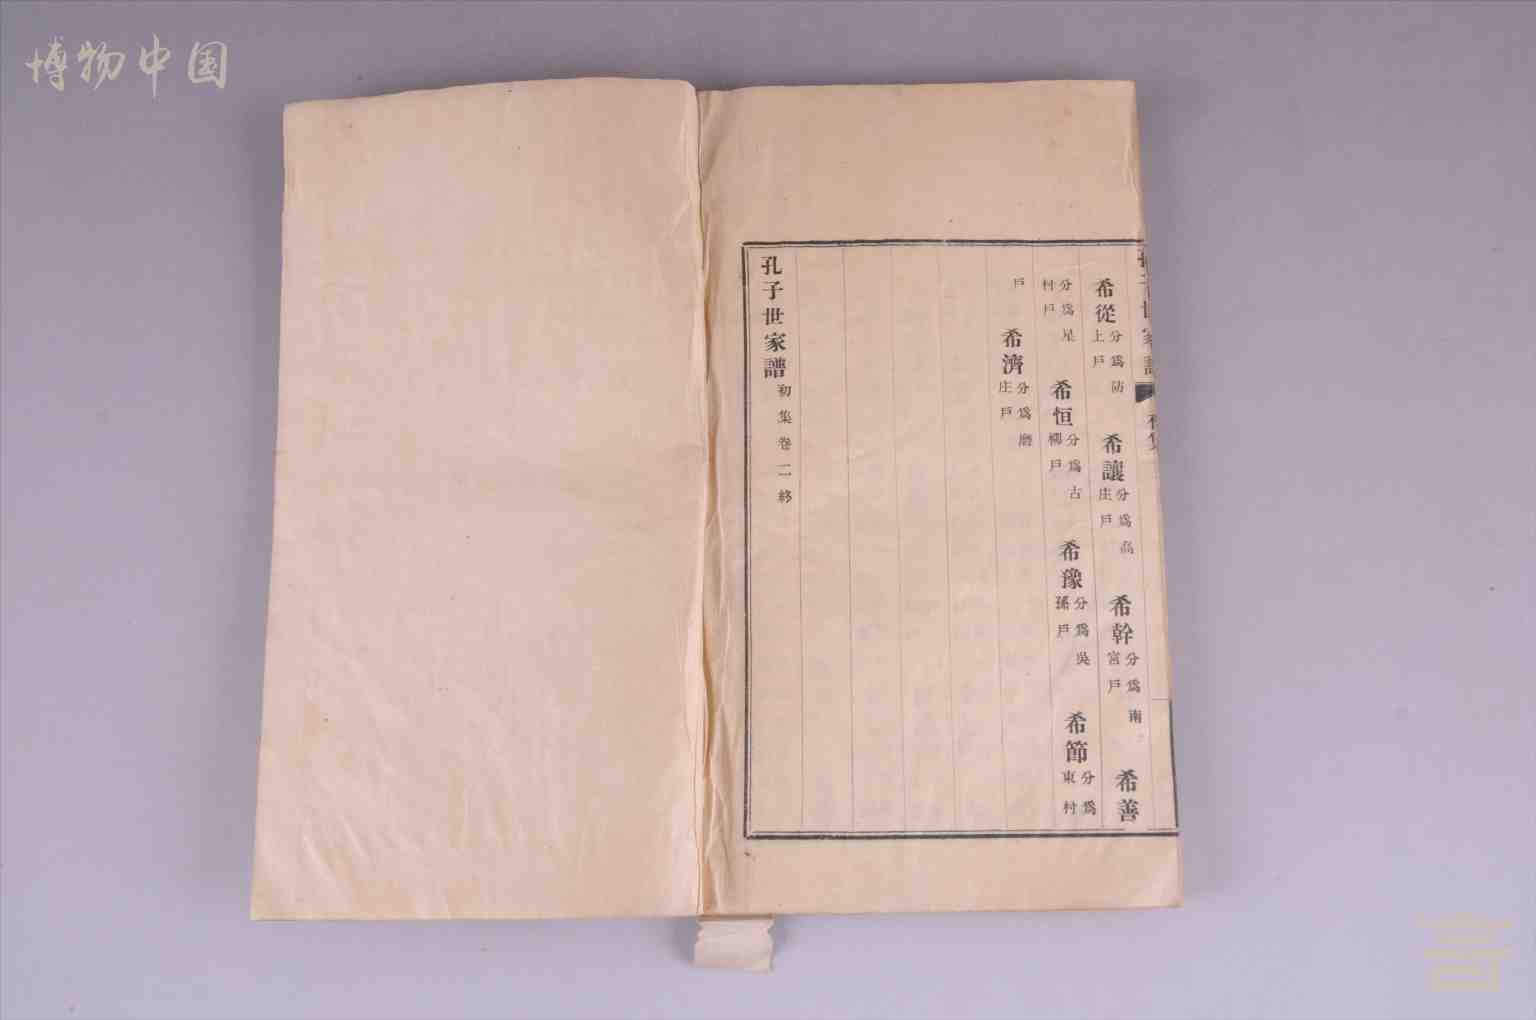 博物中国
孔子世家譜
初集
希從 分爲防上戶 希讓 分爲高庄戶 希幹 分爲南宮戶 希善
分爲星村戶 希恒 分爲古柳戶 希豫 分爲吳孫戶 希節 分爲東村
戶 希濟 分爲磨庄戶
孔子世家譜 初集卷二終